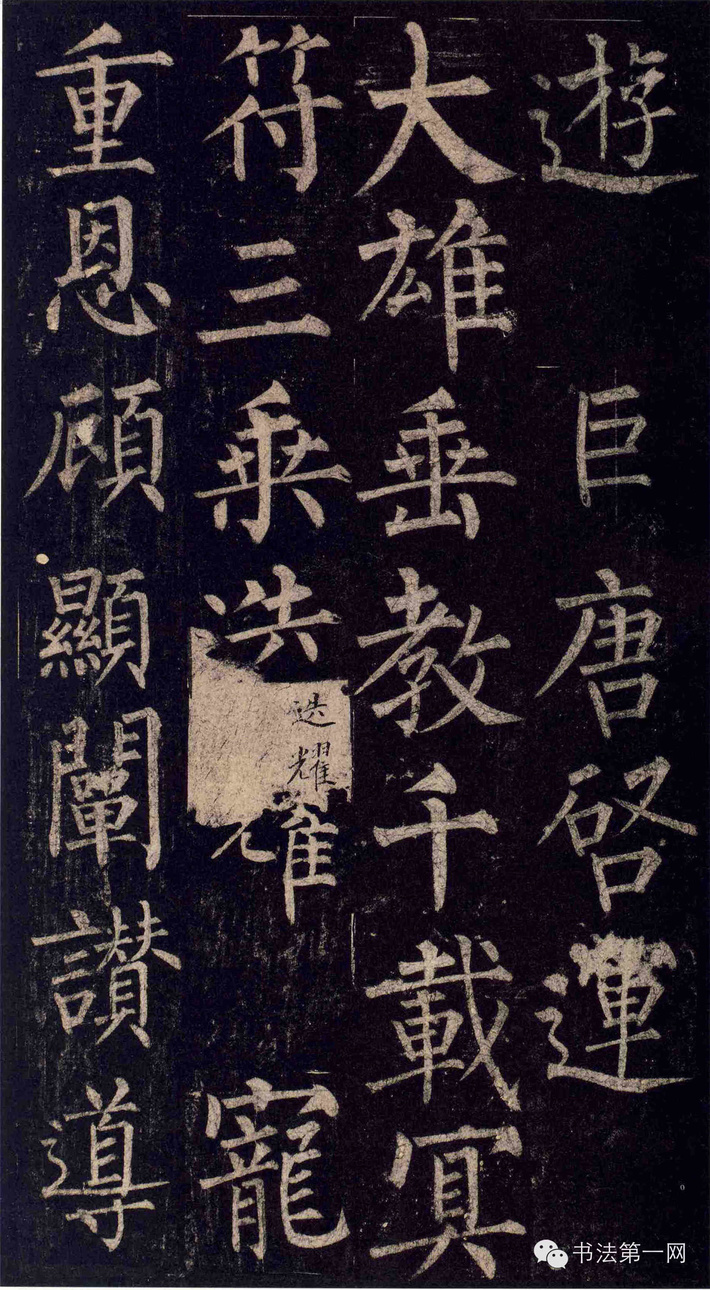 遊 巨唐啓運
大雄垂教千載冥
符三乗迭耀 寵
迭耀
重恩顧顯闡讃導
书法第一网